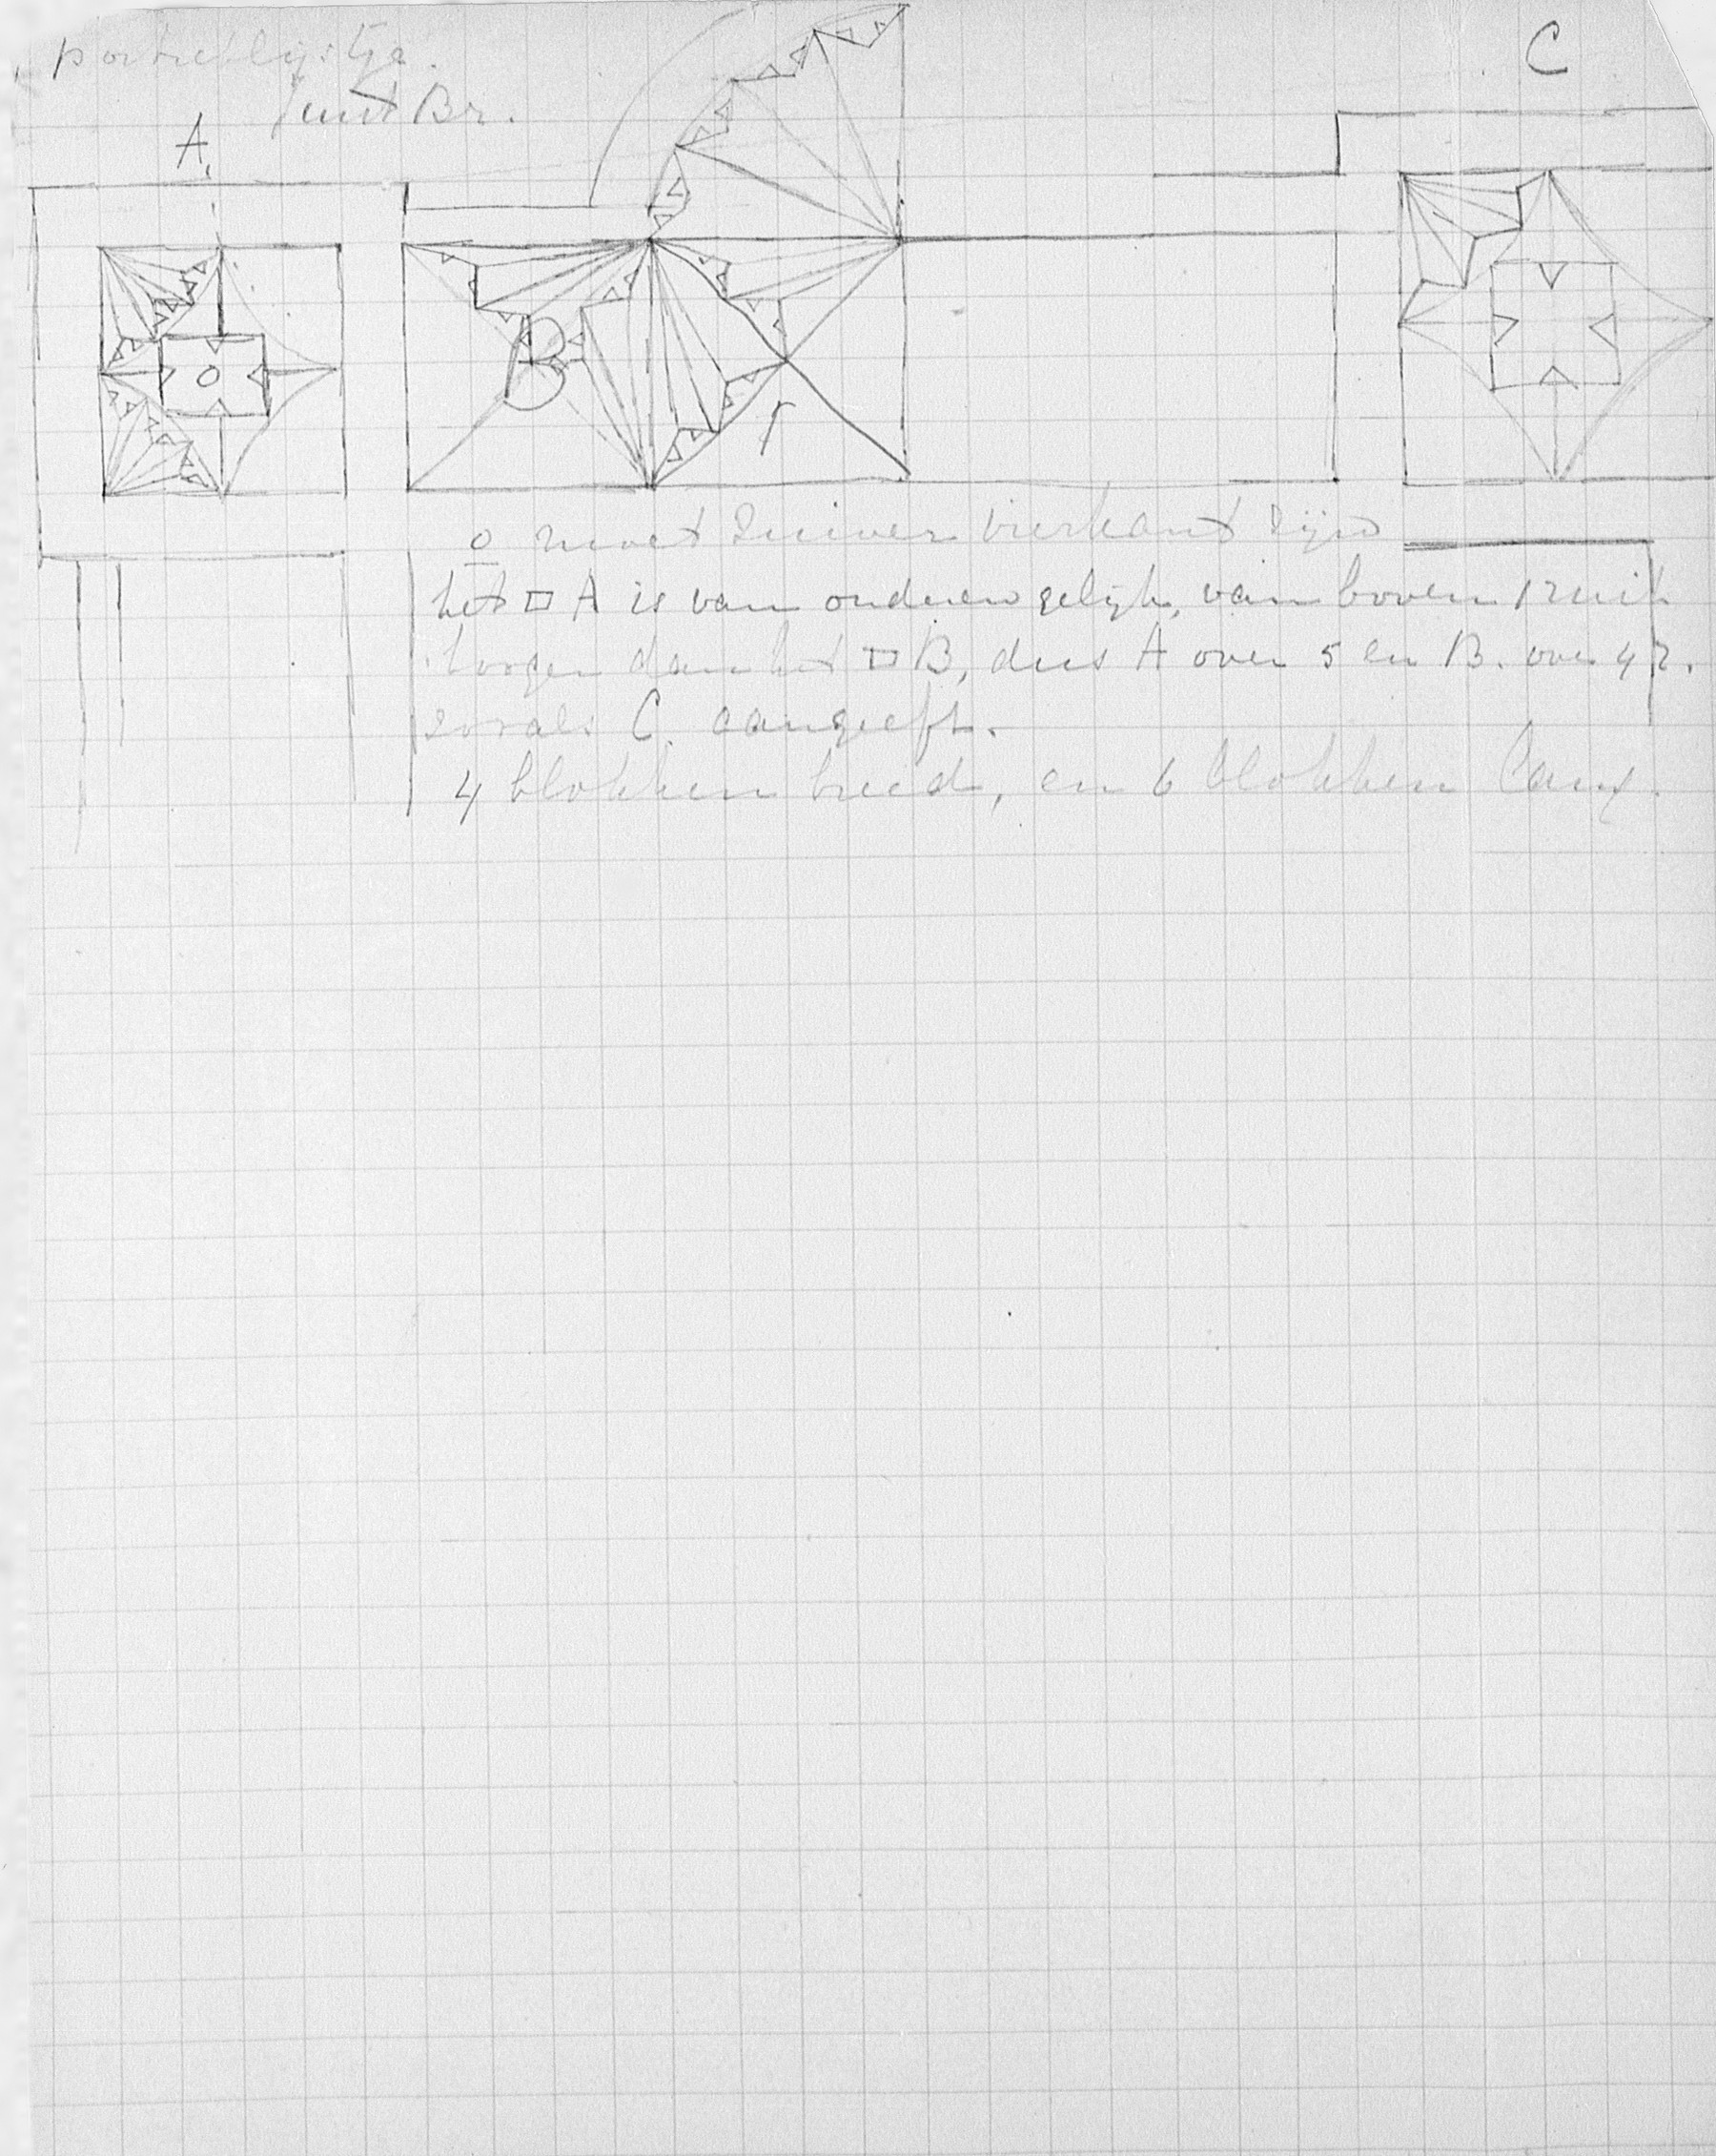 portretlijstje.
A
C
B
o
r
o moet zuiver vierkant zijn
het □ A is van onderen gelijk, van boven 1 ruit
hooger dan het □ B, dus A over 5 en B. over 4 r.
zooals C. aangeeft.
4 blokken breed, en 6 blokken lang.